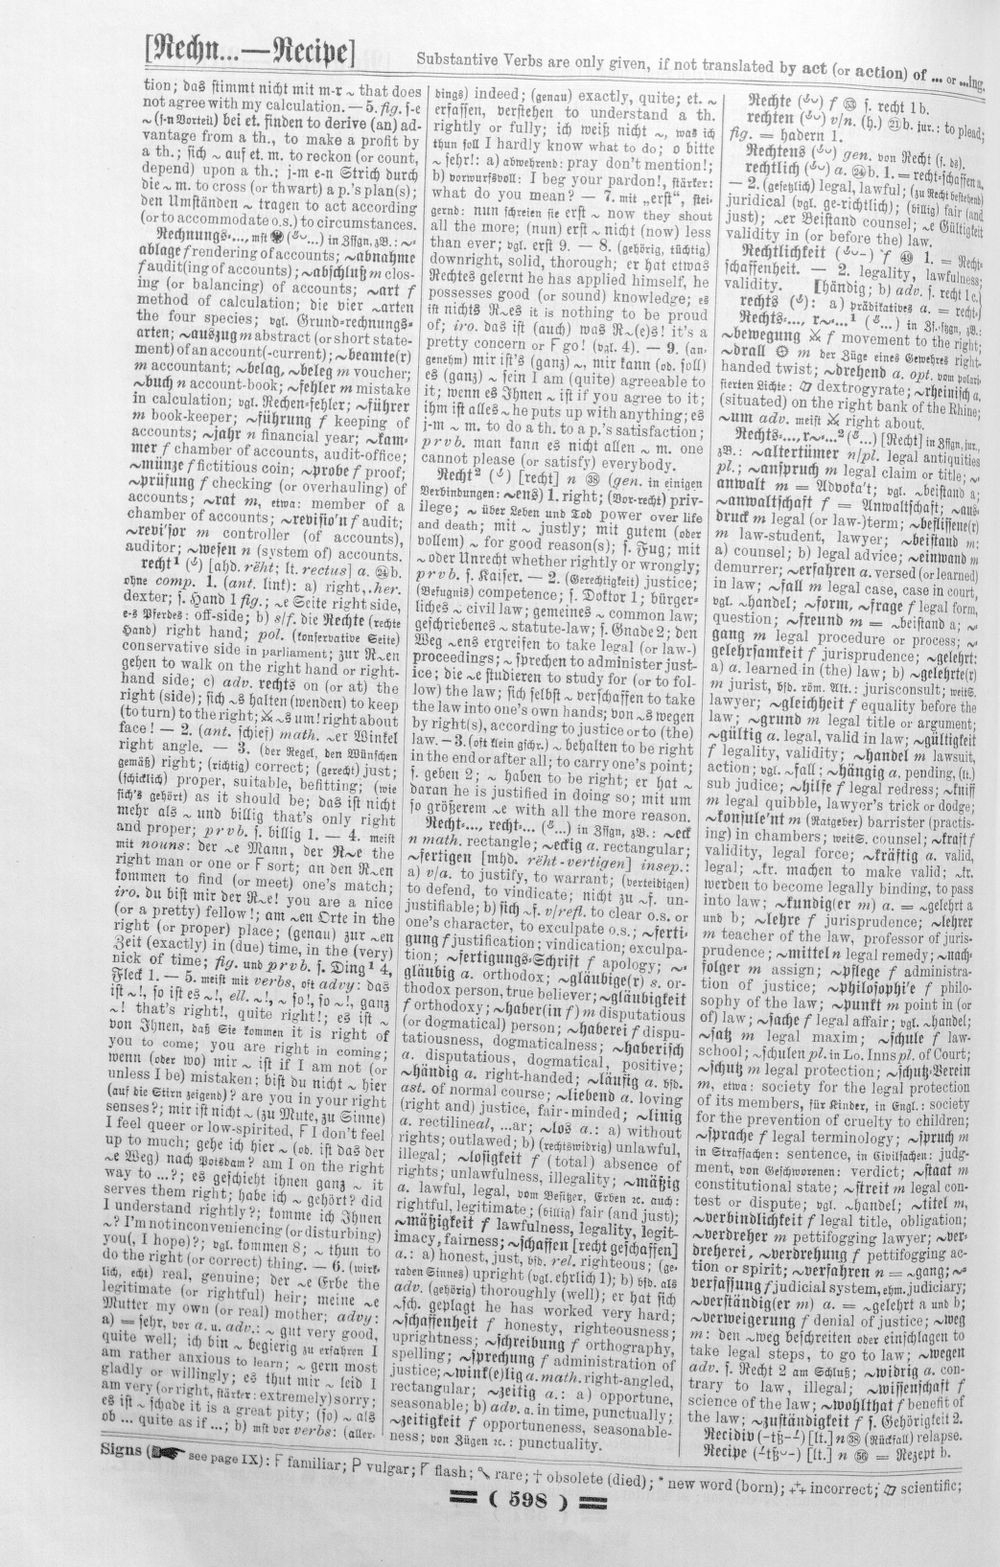 [Rechn...—Recipe]
Substantive Verbs are only given, if not translated by act (or action) of ... or ...ing.
tion; das stimmt nicht mit m-r ~ that does
not agree with my calculation. — 5. fig. s-e
~ (s-n Vorteil) bei et. finden to derive (an) ad-
vantage from a th., to make a profit by
a th.; sich ~ auf et. m. to reckon (or count,
depend) upon a th.; j-m e-n Strich durch
die ~ m. to cross (or thwart) a p.'s plan(s);
den Umständen ~ tragen to act according
(or to accommodate o.s.) to circumstances.
Rechnungs-..., mst (...) in Zssgn, zB.: ~-
ablage f rendering of accounts; ~abnahme
f audit(ing of accounts); ~abschluß m clos-
ing (or balancing) of accounts; ~art f
method of calculation; die vier ~arten
the four species; vgl. Grund-rechnungs-
arten; ~auszug m abstract (or short state-
ment) of an account(-current); ~beamte(r)
m accountant; ~belag, ~beleg m voucher;
~buch n account-book; ~fehler m mistake
in calculation; vgl. Rechen-fehler; ~führer
m book-keeper; ~führung f keeping of
accounts; ~jahr n financial year; ~kam-
mer f chamber of accounts, audit-office;
~münze f fictitious coin; ~probe f proof;
~prüfung f checking (or overhauling) of
accounts; ~rat m, etwa: member of a
chamber of accounts; ~revisio'n f audit;
~revi'sor m controller (of accounts),
auditor; ~wesen n (system of) accounts.
recht¹ [ahd. rëht; lt. rectus] a. b.
ohne comp. 1. (ant. link): a) right, her.
dexter; s. Hand 1 fig.; ~e Seite right side,
e-s Pferdes: off-side; b) s/f. die Rechte (rechte
Hand) right hand; pol. (konservative Seite)
conservative side in parliament; zur R~en
gehen to walk on the right hand or right-
hand side; c) adv. rechts on (or at) the
right (side); sich ~s halten (wenden) to keep
(to turn) to the right; ~s um! right about
face! — 2. (ant. schief) math. ~er Winkel
right angle. — 3. (der Regel, den Wünschen
gemäß) right; (richtig) correct; (gerecht) just;
(schicklich) proper, suitable, befitting; (wie
sich's gehört) as it should be; das ist nicht
mehr als ~ und billig that's only right
and proper; prvb. s. billig 1. — 4. meist
mit nouns: der ~e Mann, der R~e the
right man or one or F sort; an den R~en
kommen to find (or meet) one's match;
iro. du bist mir der R~e! you are a nice
(or a pretty) fellow!; am ~en Orte in the
right (or proper) place; (genau) zur ~en
Zeit (exactly) in (due) time, in the (very)
nick of time; fig. und prvb. s. Ding¹ 4,
Fleck 1. — 5. meist mit verbs, oft advy: das
ist ~!, so ist es ~!, ell. ~!, ~ so!, so ~!, ganz
~! that's right!, quite right!; es ist ~
von Ihnen, daß Sie kommen it is right of
you to come; you are right in coming;
wenn (oder wo) mir ~ ist if I am not (or
unless I be) mistaken; bist du nicht ~ hier
(auf die Stirn zeigend)? are you in your right
senses?; mir ist nicht ~ (zu Mute, zu Sinne)
I feel queer or low-spirited, F I don't feel
up to much; gehe ich hier ~ (ob. ist das der
~e Weg) nach Potsdam? am I on the right
way to ...?; es geschieht ihnen ganz ~ it
serves them right; habe ich ~ gehört? did
I understand rightly?; komme ich Ihnen
~? I'm not inconveniencing (or disturbing)
you(, I hope)?; vgl. kommen 8; ~ thun to
do the right (or correct) thing. — 6. (wirk-
lich, echt) real, genuine; der ~e Erbe the
legitimate (or rightful) heir; meine ~e
Mutter my own (or real) mother; advy:
a) = sehr, vor a. u. adv.: ~ gut very good,
quite well; ich bin ~ begierig zu erfahren I
am rather anxious to learn; ~ gern most
gladly or willingly; es thut mir ~ leid I
am very (or right, stärker: extremely) sorry;
es ist ~ schade it is a great pity; (so) ~ als
ob ... quite as if ...; b) mst vor verbs: (aller-
dings) indeed; (genau) exactly, quite; et. ~
erfassen, verstehen to understand a th.
rightly or fully; ich weiß nicht ~, was ich
thun soll I hardly know what to do; o bitte
~ sehr!: a) abwehrend: pray don't mention!;
b) vorwurfsvoll: I beg your pardon!, stärker:
what do you mean? — 7. mit „erst“, stei-
gernd: nun schreien sie erst ~ now they shout
all the more; (nun) erst ~ nicht (now) less
than ever; vgl. erst 9. — 8. (gehörig, tüchtig)
downright, solid, thorough; er hat etwas
Rechtes gelernt he has applied himself, he
possesses good (or sound) knowledge; es
ist nichts R~es it is nothing to be proud
of; iro. das ist (auch) was R~(e)s! it's a
pretty concern or F go! (vgl. 4). — 9. (an-
genehm) mir ist's (ganz) ~, mir kann (ob. soll)
es (ganz) ~ sein I am (quite) agreeable to
it; wenn es Ihnen ~ ist if you agree to it;
ihm ist alles ~ he puts up with anything; es
j-m ~ m. to do a th. to a p.'s satisfaction;
prvb. man kann es nicht allen ~ m. one
cannot please (or satisfy) everybody.
Recht² [recht] n 38 (gen. in einigen
Verbindungen: ~ens) 1. right; (Vor-recht) priv-
ilege; ~ über Leben und Tod power over life
and death; mit ~ justly; mit gutem (oder
vollem) ~ for good reason(s); s. Fug; mit
~ oder Unrecht whether rightly or wrongly;
prvb. s. Kaiser. — 2. (Gerechtigkeit) justice;
(Befugnis) competence; s. Doktor 1; bürger-
liches ~ civil law; gemeines ~ common law;
geschriebenes ~ statute-law; s. Gnade 2; den
Weg ~ens ergreifen to take legal (or law-)
proceedings; ~ sprechen to administer just-
ice; die ~e studieren to study for (or to fol-
low) the law; sich selbst ~ verschaffen to take
the law into one's own hands; von ~s wegen
by right(s), according to justice or to (the)
law. — 3. (oft klein gschr.) ~ behalten to be right
in the end or after all; to carry one's point;
s. geben 2; ~ haben to be right; er hat ~
daran he is justified in doing so; mit um
so größerem ~e with all the more reason.
Recht-..., recht-... (...) in Zssgn, zB.: ~eck
n math. rectangle; ~eckig a. rectangular;
~fertigen [mhd. rëht-vertigen] insep.:
a) v/a. to justify, to warrant; (verteidigen)
to defend, to vindicate; nicht zu ~f. un-
justifiable; b) sich ~f. v/refl. to clear o.s. or
one's character, to exculpate o.s.; ~ferti-
gung f justification; vindication; exculpa-
tion; ~fertigungs-Schrift f apology; ~-
gläubig a. orthodox; ~gläubige(r) s. or-
thodox person, true believer; ~gläubigkeit
f orthodoxy; ~haber(in f) m disputatious
(or dogmatical) person; ~haberei f dispu-
tatiousness, dogmaticalness; ~haberisch
a. disputatious, dogmatical, positive;
~händig a. right-handed; ~läufig a. bsd.
ast. of normal course; ~liebend a. loving
(right and) justice, fair-minded; ~linig
a. rectilineal, ...ar; ~los a.: a) without
rights; outlawed; b) (rechtswidrig) unlawful,
illegal; ~losigkeit f (total) absence of
rights; unlawfulness, illegality; ~mäßig
a. lawful, legal, vom Besitzer, Erben &c. auch:
rightful, legitimate; (billig) fair (and just);
~mäßigkeit f lawfulness, legality, legit-
imacy, fairness; ~schaffen [recht geschaffen]
a.: a) honest, just, bsd. rel. righteous; (ge-
raden Sinnes) upright (vgl. ehrlich 1); b) bsd. als
adv. (gehörig) thoroughly (well); er hat sich
~sch. geplagt he has worked very hard;
~schaffenheit f honesty, righteousness;
uprightness; ~schreibung f orthography,
spelling; ~sprechung f administration of
justice; ~wink(e)lig a. math. right-angled,
rectangular; ~zeitig a.: a) opportune,
seasonable; b) adv. a. in time, punctually;
~zeitigkeit f opportuneness, seasonable-
ness; von Zügen &c.: punctuality.
Rechte f s. recht 1 b.
rechten v/n. (h.) b. jur.: to plead;
fig. = hadern 1.
Rechtens gen. von Recht (s. ds).
rechtlich a. b. 1. = recht-schaffen a,
— 2. (gesetzlich) legal, lawful; (zu Recht bestehend)
juridical (vgl. ge-richtlich); (billig) fair (and
just); ~er Beistand counsel; ~e Gültigkeit
validity in (or before the) law.
Rechtlichkeit f 1. = Recht-
schaffenheit. — 2. legality, lawfulness;
validity. [händig; b) adv. s. recht 1 c.]
rechts: a) prädikatives a. = recht-
Rechts-..., r~-...¹ (...) in Zs.-sgn, zB.:
~bewegung f movement to the right;
~drall m der Züge eines Gewehres right-
handed twist; ~drehend a. opt. vom polari-
sierten Lichte: dextrogyrate; ~rheinisch a.
(situated) on the right bank of the Rhine;
~um adv. meist right about.
Rechts-..., r~-...² (...) [Recht] in Zssgn, jur.,
zB.: ~altertümer n/pl. legal antiquities
pl.; ~anspruch m legal claim or title; ~-
anwalt m = Advoka't; vgl. ~beistand a;
~anwaltschaft f = Anwaltschaft; ~aus-
druck m legal (or law-)term; ~beflissene(r)
m law-student, lawyer; ~beistand m;
a) counsel; b) legal advice; ~einwand m
demurrer; ~erfahren a. versed (or learned)
in law; ~fall m legal case, case in court,
vgl. ~handel; ~form, ~frage f legal form,
question; ~freund m = ~beistand a; ~-
gang m legal procedure or process; ~-
gelehrsamkeit f jurisprudence; ~gelehrt:
a) a. learned in (the) law; b) ~gelehrte(r)
m jurist, bsd. röm. Alt.: jurisconsult; weitS.
lawyer; ~gleichheit f equality before the
law; ~grund m legal title or argument;
~gültig a. legal, valid in law; ~gültigkeit
f legality, validity; ~handel m lawsuit,
action; vgl. ~fall; ~hängig a. pending, (lt.)
sub judice; ~hilfe f legal redress; ~kniff
m legal quibble, lawyer's trick or dodge;
~konsule'nt m (Ratgeber) barrister (practis-
ing) in chambers; weitS. counsel; ~kraft f
validity, legal force; ~kräftig a. valid,
legal; ~kr. machen to make valid; ~kr.
werden to become legally binding, to pass
into law; ~kundig(er m) a. = ~gelehrt a
und b; ~lehre f jurisprudence; ~lehrer
m teacher of the law, professor of juris-
prudence; ~mittel n legal remedy; ~nach-
folger m assign; ~pflege f administra-
tion of justice; ~philosophi'e f philo-
sophy of the law; ~punkt m point in (or
of) law; ~sache f legal affair; vgl. ~handel;
~satz m legal maxim; ~schule f law-
school; ~schulen pl. in Lo. Inns pl. of Court;
~schutz m legal protection; ~schutz-Verein
m, etwa: society for the legal protection
of its members, für Kinder, in Engl.: society
for the prevention of cruelty to children;
~sprache f legal terminology; ~spruch m
in Strafsachen: sentence, in Civilsachen: judg-
ment, von Geschworenen: verdict; ~staat m
constitutional state; ~streit m legal con-
test or dispute; vgl. ~handel; ~titel m,
~verbindlichkeit f legal title, obligation;
~verdreher m pettifogging lawyer; ~ver-
dreherei, ~verdrehung f pettifogging ac-
tion or spirit; ~verfahren n = ~gang; ~-
verfassung f judicial system, ehm. judiciary;
~verständig(er m) a. = ~gelehrt a und b;
~verweigerung f denial of justice; ~weg
m: den ~weg beschreiten oder einschlagen to
take legal steps, to go to law; ~wegen
adv. s. Recht 2 am Schluß; ~widrig a. con-
trary to law, illegal; ~wissenschaft f
science of the law; ~wohlthat f benefit of
the law; ~zuständigkeit f s. Gehörigkeit 2.
Recidiv [lt.] n 38 (Rückfall) relapse.
Recipe [lt.] n 56 = Rezept b.
Signs (see page IX): F familiar; P vulgar; flash; rare; † obsolete (died); * new word (born); incorrect; scientific;
( 598 )